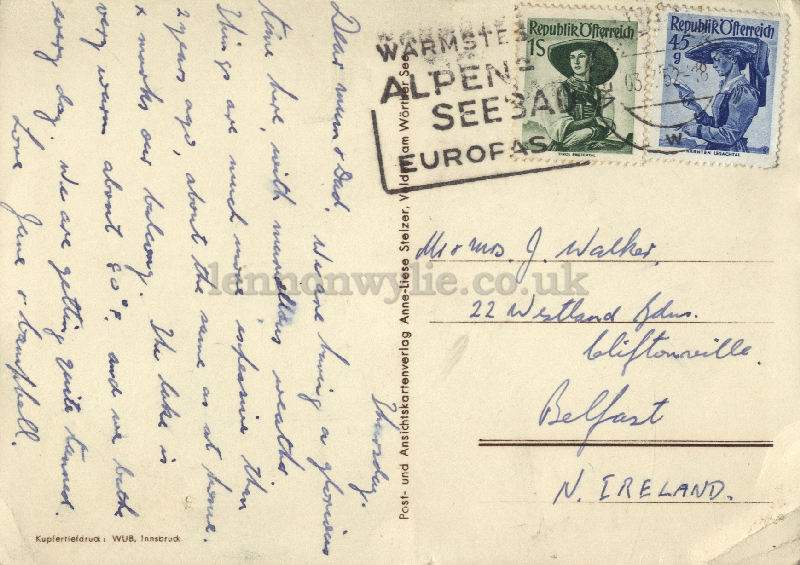 Thursday.
Dear mum & Dad, We are having a glorious
time here, with marvellous weather
Things are much more expensive than
2 years ago, about the same as at home.
x marks our balcony. The lake is
very warm about 80°F. and we bathe
every day. We are getting quite tanned.
Love Jane & Campbell.
Kupfertiefdruck: WUB, Innsbruck
Post- und Ansichtskartenverlag Anne-Liese Stelzer, Velden am Wörther See
WÄRMSTER
ALPEN-
SEEBAD
EUROPAS
Republik Österreich
1S
TIROL
Republik Österreich
45
g
KÄRNTEN LESACHTAL
52
W
Mr & Mrs. J. Walker.
22 Westland Gdns.
Cliftonville.
Belfast
N. IRELAND.
lennonwylie.co.uk